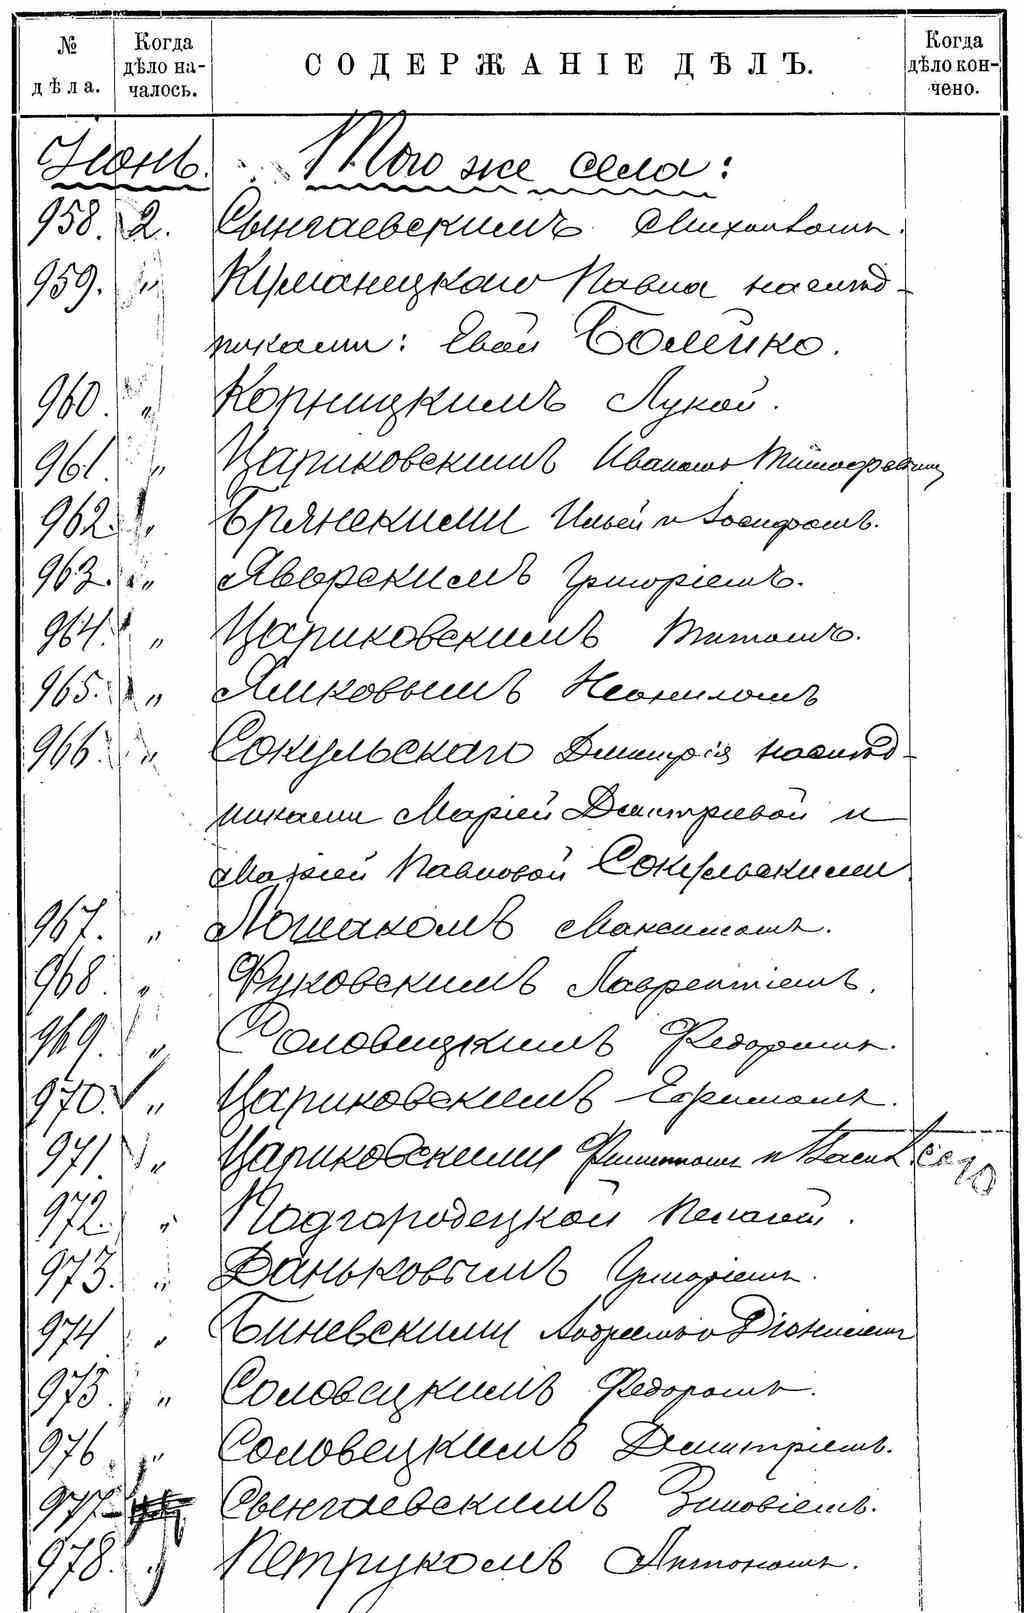 № дѣла.
Когда дѣло началось.
СОДЕРЖАНІЕ ДѢЛЪ.
Когда дѣло кончено.
Іюнь. Того же села:
958. 2. Сынгаевскимъ Михаиломъ.
959. " Куманецкаго Павла наслѣд-
никами: Евой Болейко.
960. " Корницкимъ Лукой.
961. " Цариковскимъ Иваномъ
962. " Брянскими Ильей и Іосифомъ.
963. " Яворскимъ Григоріемъ.
964. " Цариковскимъ Титомъ.
965. " Ямковымъ
966. " Сокульскаго Дмитрія наслѣд-
никами Маріей Дмитріевой и
Маріей Павловой Сокульскими.
967. " Лошакомъ Максимомъ.
968 " Фуковскимъ Лаврентіемъ.
969. " Соловецкимъ Федоромъ.
970. " Цариковскимъ Ефимомъ.
971. " Цариковскими Филиппомъ и
972. " Подгородецкой Пелагей.
973. " Даньковымъ Григоріемъ.
974 " Биневскими Андреемъ и Діонисіемъ
975. " Соловецкимъ Федоромъ.
976. " Соловецкимъ Дмитріемъ.
977 Сынгаевскимъ Зиновіемъ.
978. " Петрукомъ Антономъ.